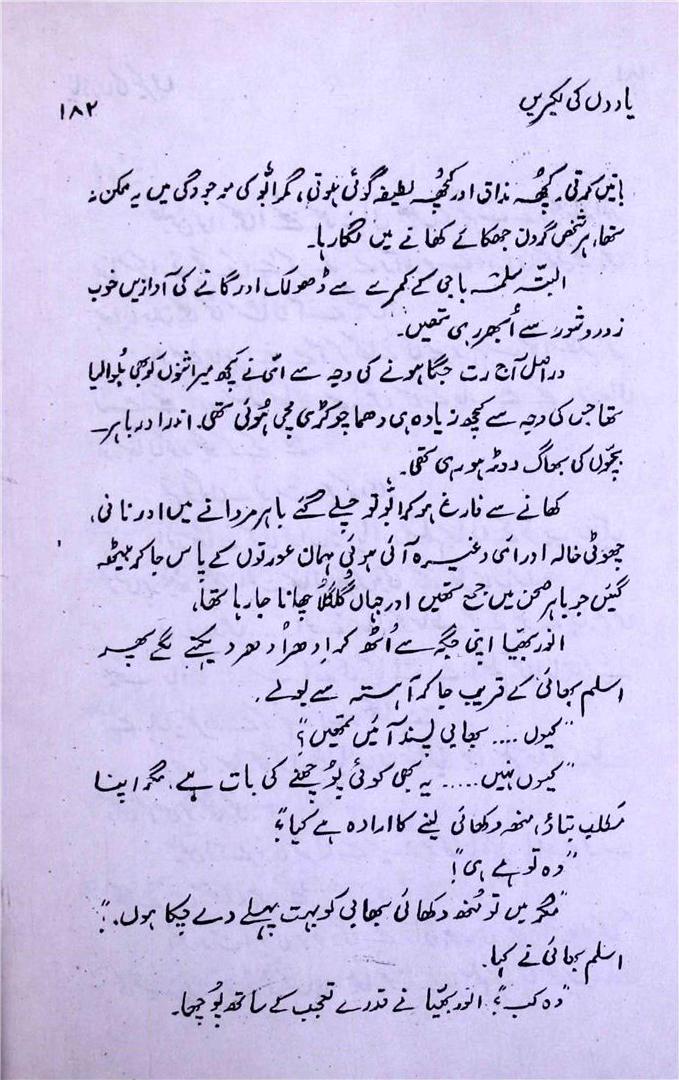 یادوں کی لکیریں
۱۸۲
باتیں کرتی۔ کچھ مذاق اور کچھ لطیفہ گوئی ہوتی، مگر ابّو کی موجودگی میں یہ ممکن نہ
تھا، ہر شخص گردن جھکائے کھانے میں لگا رہا۔
البتّہ سلمہ باجی کے کمرے سے ڈھولک اور گانے کی آوازیں خوب
زور و شور سے اُبھر رہی تھیں۔
دراصل آج رت جگا ہونے کی وجہ سے امّی نے کچھ میراثنوں کو بھی بُلوا لیا
تھا جس کی وجہ سے کچھ زیادہ ہی دھما چوکڑی مچی ہُوئی تھی۔ اندر اور باہر
بچّوں کی بھاگ دوڑ ہو رہی تھی۔
کھانے سے فارغ ہو کر ابّو تو چلے گئے باہر مردانے میں اور نانی،
چھوٹی خالہ اور امی وغیرہ آئی ہوئی مہمان عورتوں کے پاس جا کر بیٹھ
گئیں جو باہر صحن میں جمع تھیں اور جہاں گلگلا چھانا جا رہا تھا،
انور بھیّا اپنی جگہ سے اُٹھ کر اِدھر اُدھر دیکھنے لگے پھر
اسلم بھائی کے قریب جا کر آہستہ سے بولے۔
"کیوں .... بھابی پسند آئیں تمھیں"؟
"کیوں نہیں ..... یہ بھی کوئی پُوچھنے کی بات ہے، مگر اپنا
مطلب بتاؤ، منھ دکھائی لینے کا ارادہ ہے کیا"؟
"وہ تو ہے ہی"!
"مگر میں تو مُنھ دکھائی بھابی کو بہت پہلے دے چکا ہوں۔"
اسلم بھائی نے کہا۔
"وہ کب"؟ انور بھیّا نے قدرے تعجب کے ساتھ پُوچھا۔